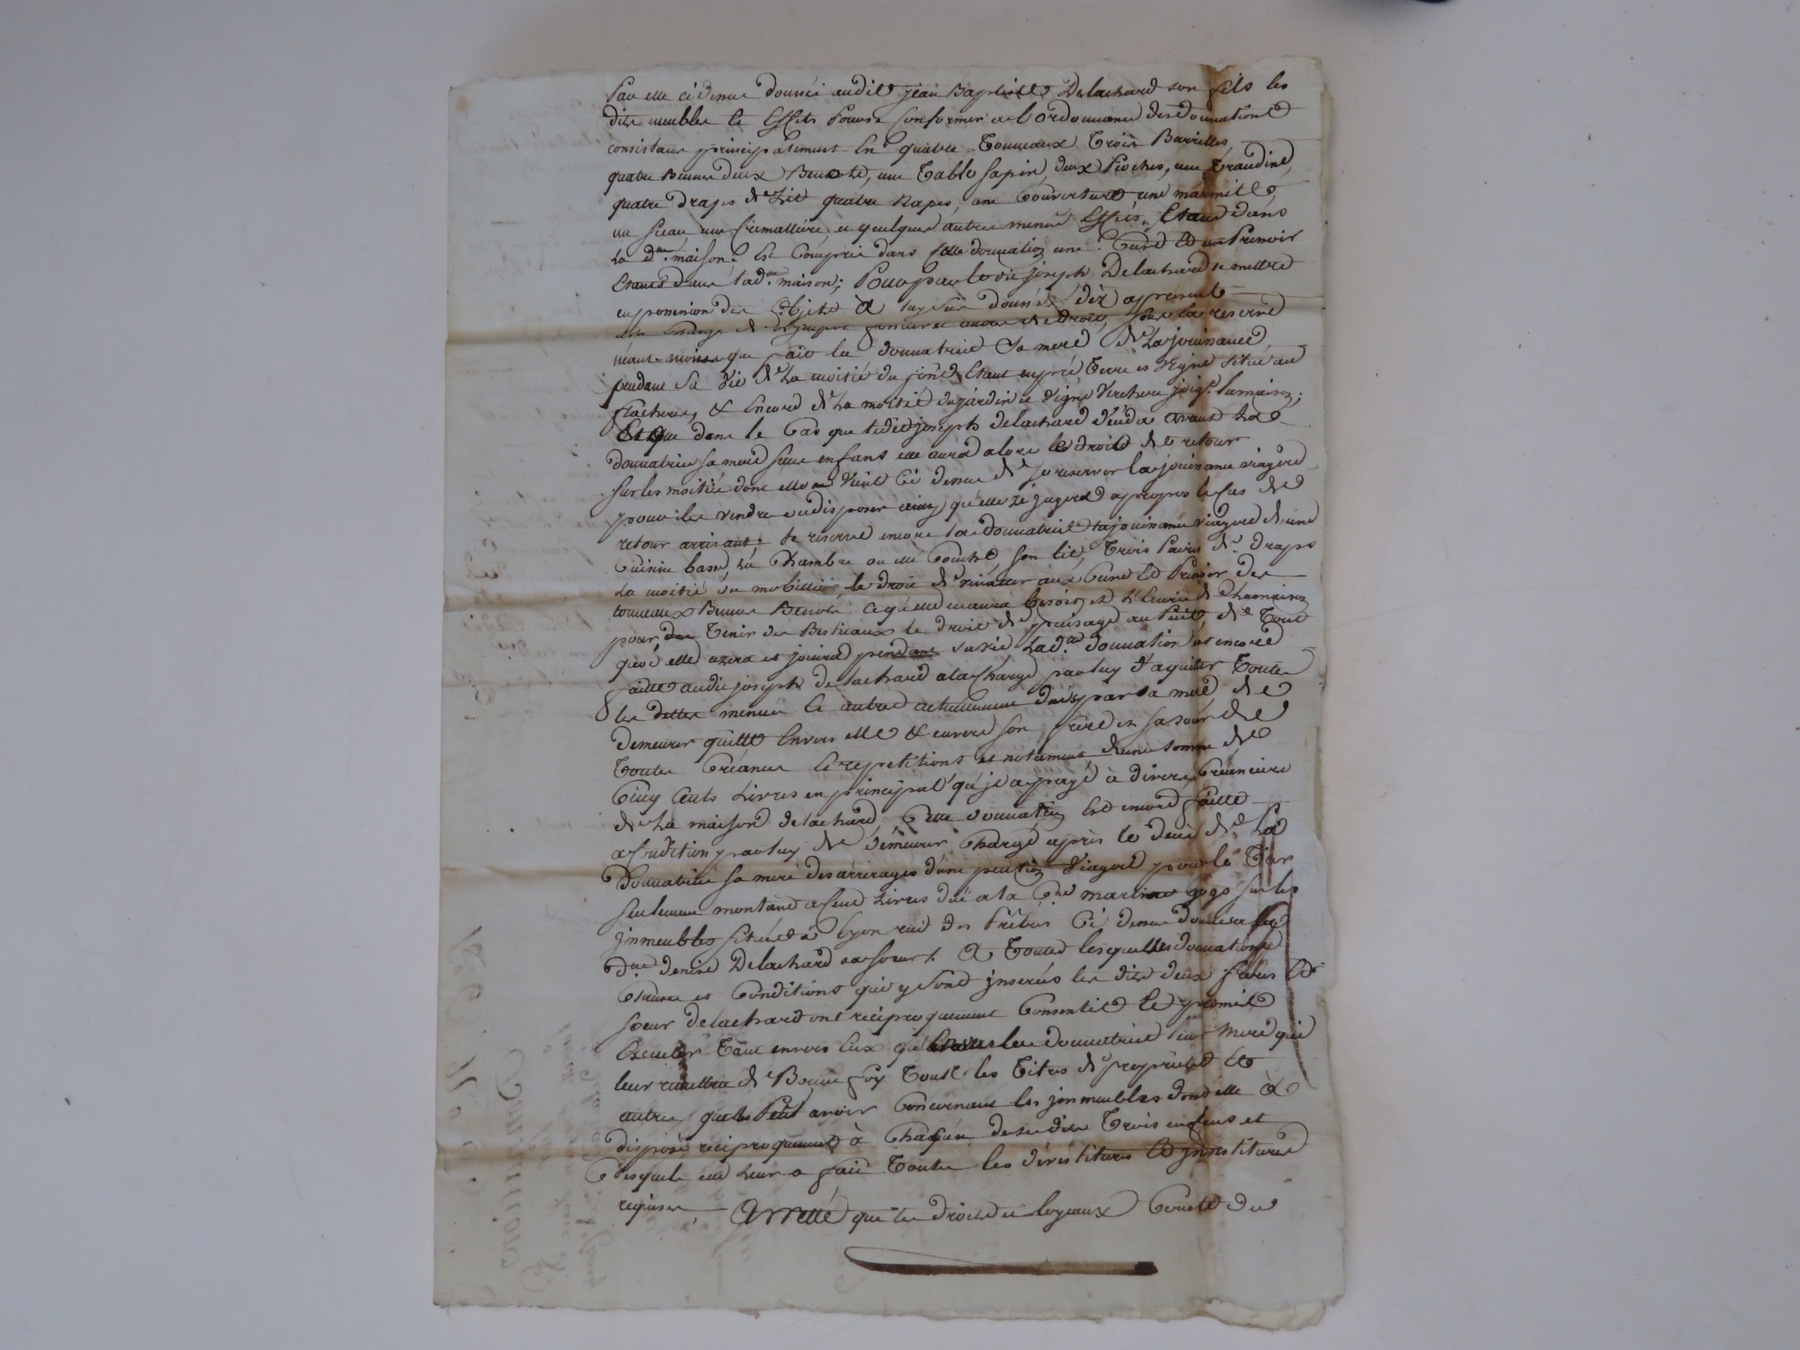 par elle cÿ dessus donnéé audit jean Baptiste Delachard son fils les
dits meubles et Effets pour se conformer a l'ordonnance des donnations
consistans principalement En quatre Tonneaux Trois Barrilles,
quatre Bennes deux Benots, une Table sapin, deux Pioches, une
quatre draps de Lit quatre Napes, une Couverture une marmitte,
un sceau une Cremalliere et quelques autres menus Effets, Etans dans
la d.e maison. Est Comprise dans cette donnation une Cuve Et un Pressoir
Etants dans lad.e maison; Pour par led.it joseph Delachard se mettre
en possession des objets à luy sus donnés dèz apresent
et autres de droit, sous la reserve
neant moins que fait la donnatrice sa mere de La jouissance
pendant sa vie de La moitié du fond Etant en pré Terre et vigne situé au
& Encore de La moitié du jardin et vigne Verchere joig.t lamaison;
Et que dans le Cas que ledit joseph delachard viendra avant La
donnatrice sa mere sans enfans elle aura alors le droit de retour
sur les moitiés dont elle vient Cÿ dessus de se reserver la jouissance viagere
pour les vendre ou disposer ainsy qu'elle le jugera apropos le Cas de
retour arrivant; se reserve encore la donnatrice la jouissance viagere d'une
Cuisine basse, La Chambre ou elle Couche, son lit, Trois Paires de draps
La moitié du mobillier, le droit de aux Cuve Et Pressoir des
tonneaux Bennes Benots ce qu'elle en aura besoin, et l'Ecurie de Lamaison
pour Tenir des Bestiaux le droit de puisage au Puit, de Tout
quoi elle usera et jouira pendant sa vie Lad.e donnation est encore
faitte audit joseph delachard ala Charge par luy d'aquitter Toutes
les dettes menues et autres actuellement dues par sa mere de
demeurer quitte Envers elle & envers son frere et sa sœur de
Toutes Créances Et repetitions et notament d'une somme de
Cinq Cents Livres en principal qu'il a payé à divers Créanciers
de La maison delachard, Cette donnation Est encore faitte
a Condition par luy de demeurer Chargé après le decès de La
donnatrice sa mere des arrerages d'une pention viagere pour le Tiers
seulement montant a Livres düe a la gogo sur les
jmmeubles situés à Lyon rue des Prêtres Cÿ dessus donnés a la
d.e denise Delachard sa sœur. A Toutes lesquelles donnations
Clauses et Conditions qui y sont jnserées les dits deux freres Et
sœur delachard ont réciproquement Consentit Et promis
Executer Tant envers Eux qu'envers la donnatrice leur Mere qui
leur remettra de Bonne foy Tous les Titres de propriété Et
autres quelle Peut avoir Concernant les jmmeubles dont elle à
disposé réciproquement à Chacun de ses dits Trois enfans et
desquels elle Leur a fait Toutes les dévestitures Et jnvestitures
requises, Arrêtté que les droits et loyaux Couts du